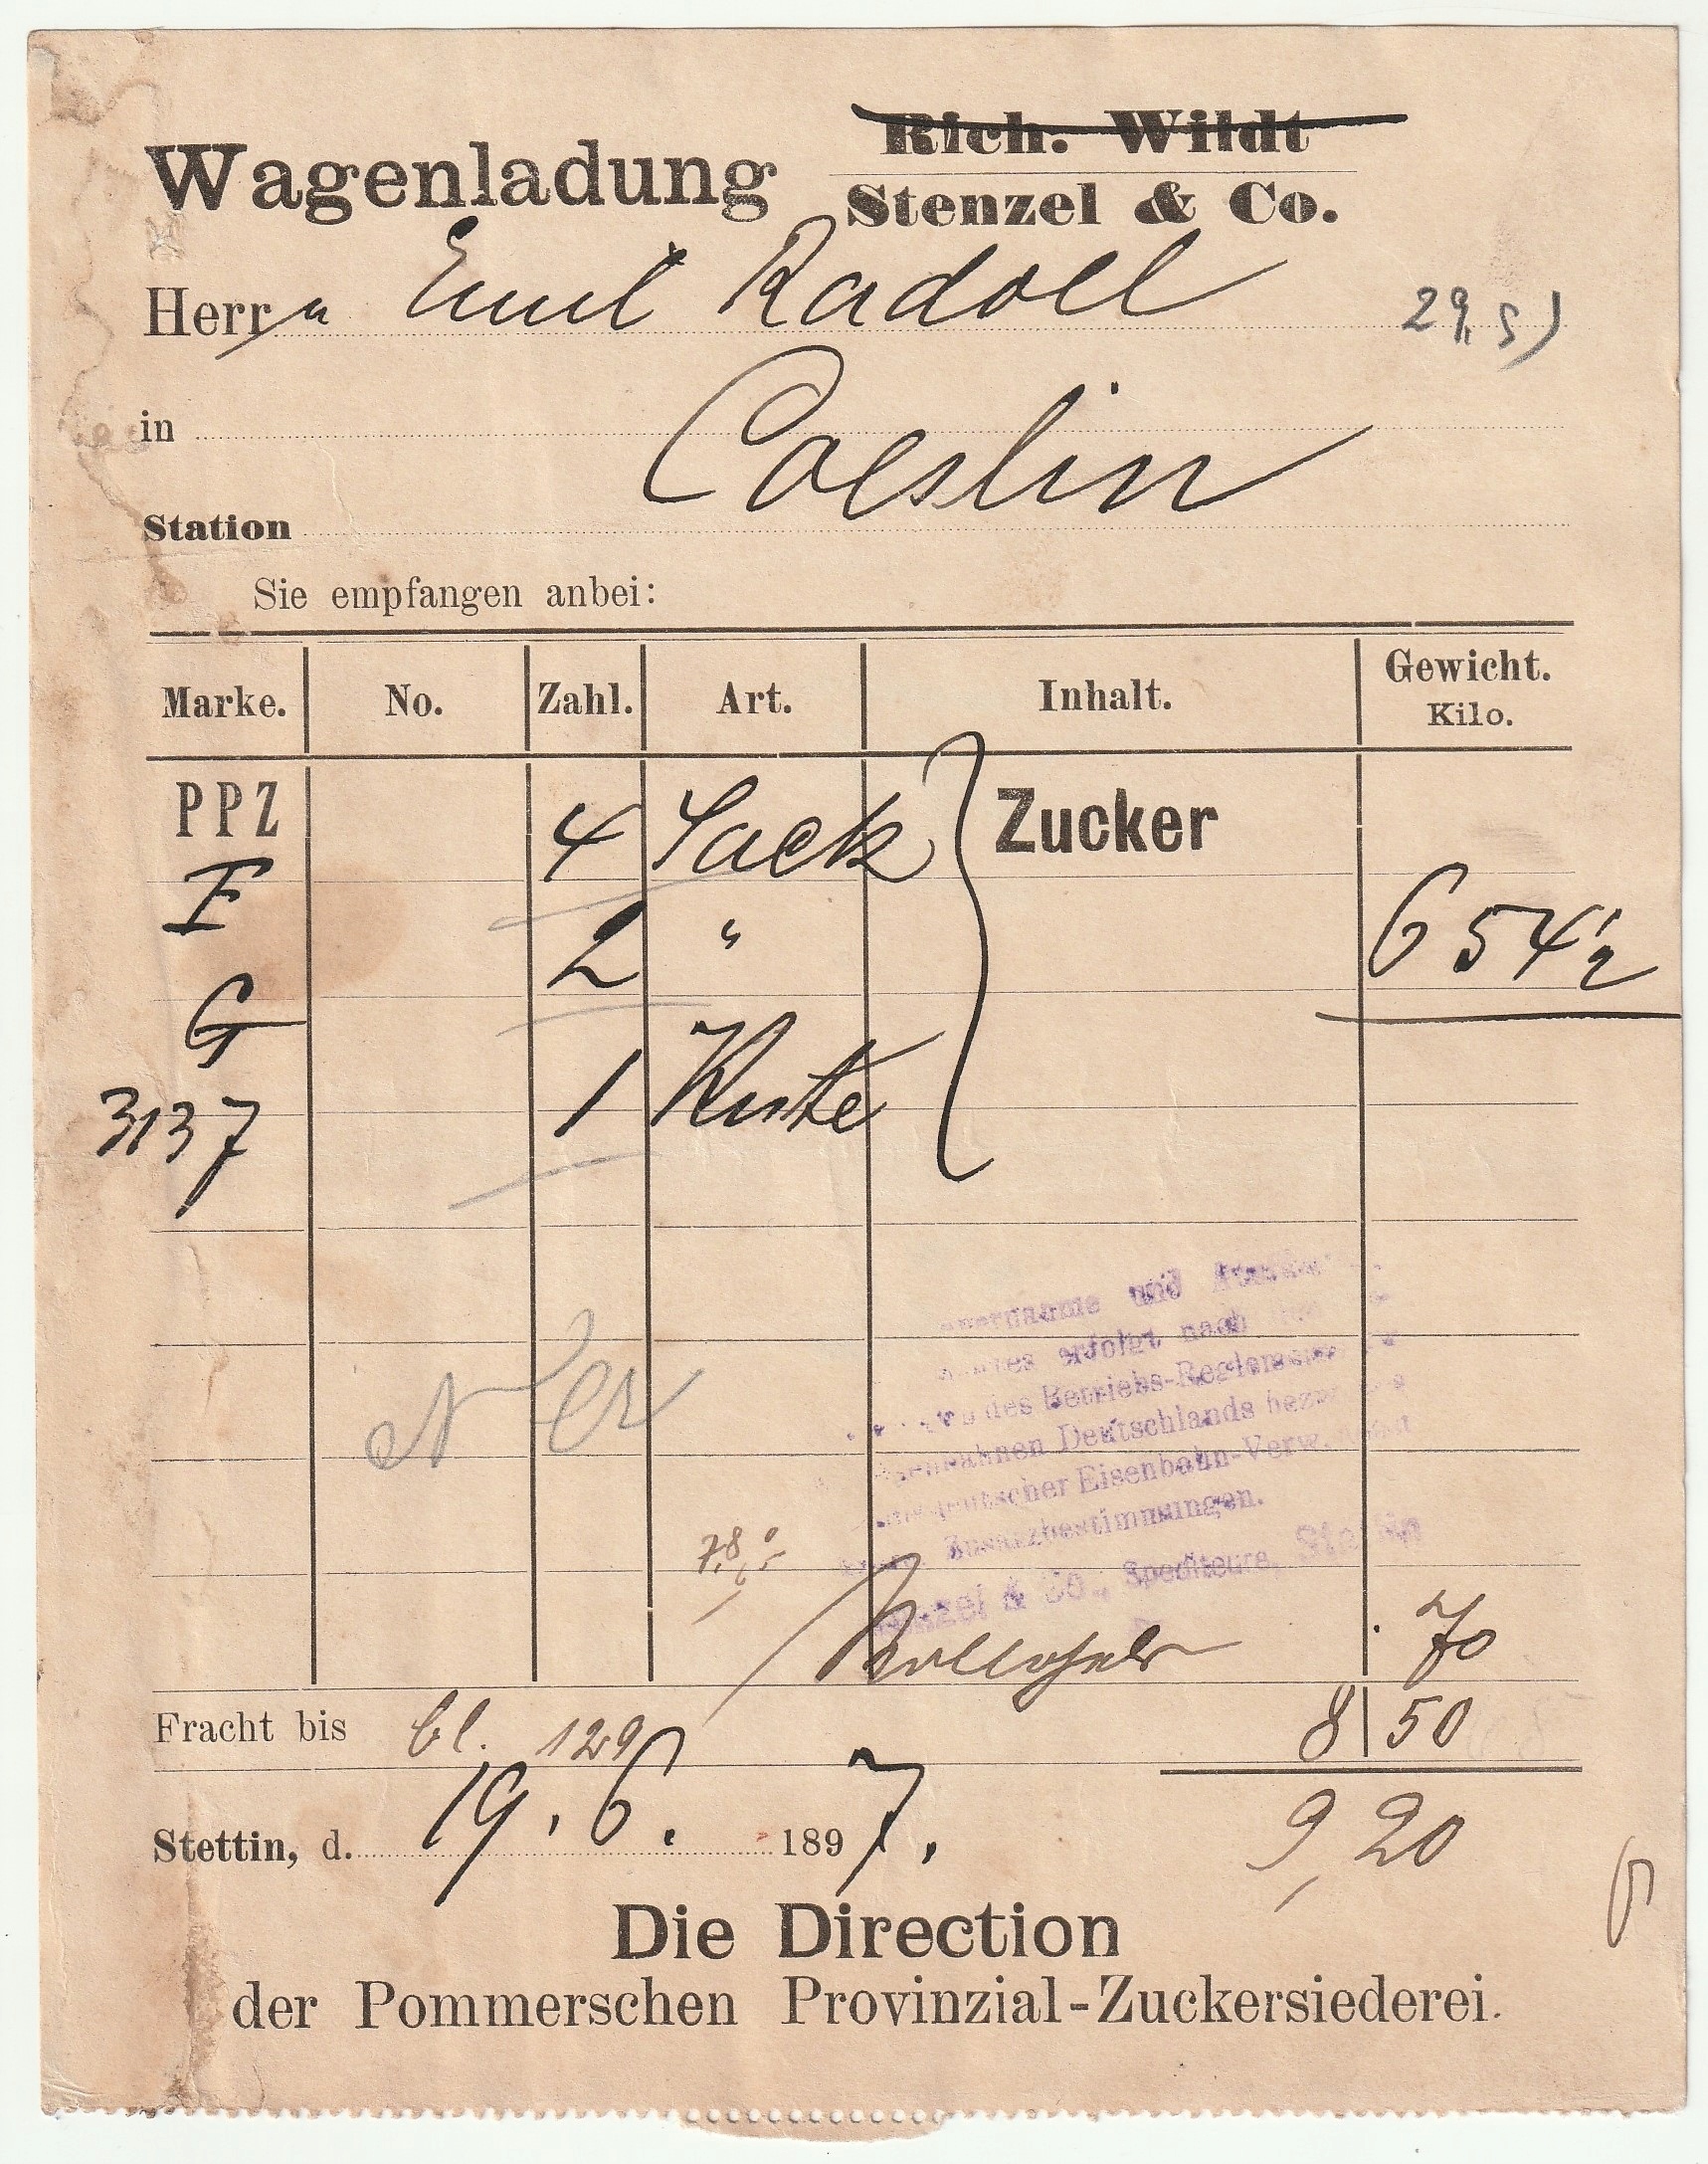 Wagenladung
Rich. Wildt
Stenzel & Co.
Herrn Emil Radoll
29,5)
in
Coeslin
Station
Sie empfangen anbei:
Marke. No. Zahl. Art. Inhalt. Gewicht. Kilo.
PPZ 4 Sack Zucker
F 2 " 654½
G 1 Kiste
3137
und
erfolgt nach
des Betriebs-Reglements
Deutschlands
deutscher Eisenbahn-Verw.
Zusatzbestimmungen.
& Co., Spediteure, Stettin
Rollgeld 70
Fracht bis bl. 129 8 50
Stettin, d. 19. 6. 1897. 9,20
Die Direction
der Pommerschen Provinzial-Zuckersiederei.